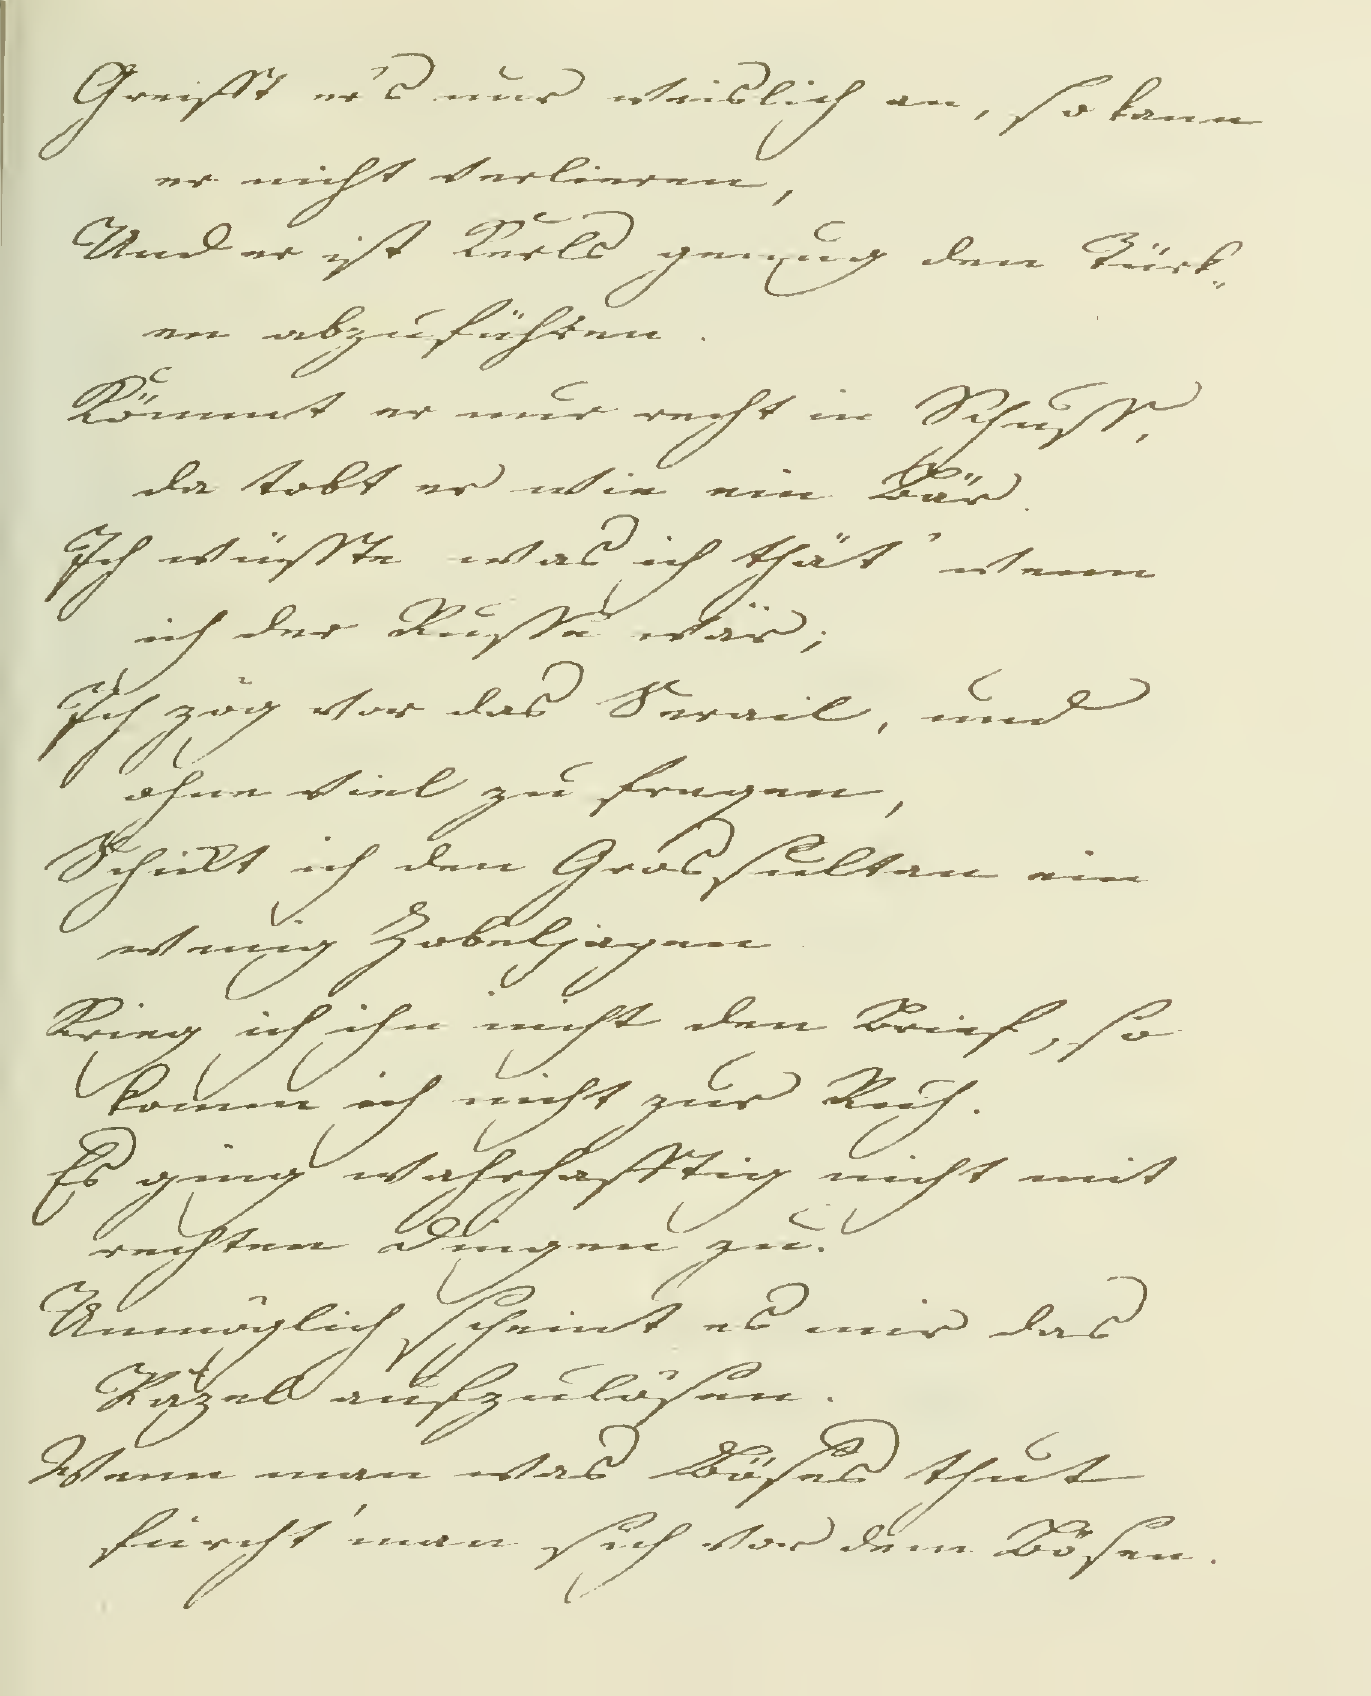 Greifft er's nur weislich an, so kann
er nicht verlieren,
Und er ist Kerls genug den Türk„
en abzuführen.
Kömmt er nur recht in Schuss,
da tobt er wie ein Bär.
Ich wüsste was ich thät' wenn
ich der Russe wär;
Ich zög vor das Serail, und
ohne viel zu fragen,
Schickt ich den Grossultan ein
wenig Zobeljagen
Krieg ich ihn nicht den Brief, so
komm ich nicht zur Ruh.
Es ging wahrhafftig nicht mit
rechten Dingen zu.
Unmöglich scheint es mir das
Räzel aufzulösen.
Wenn man was Böses thut
fürcht' man sich vor dem Bösen.